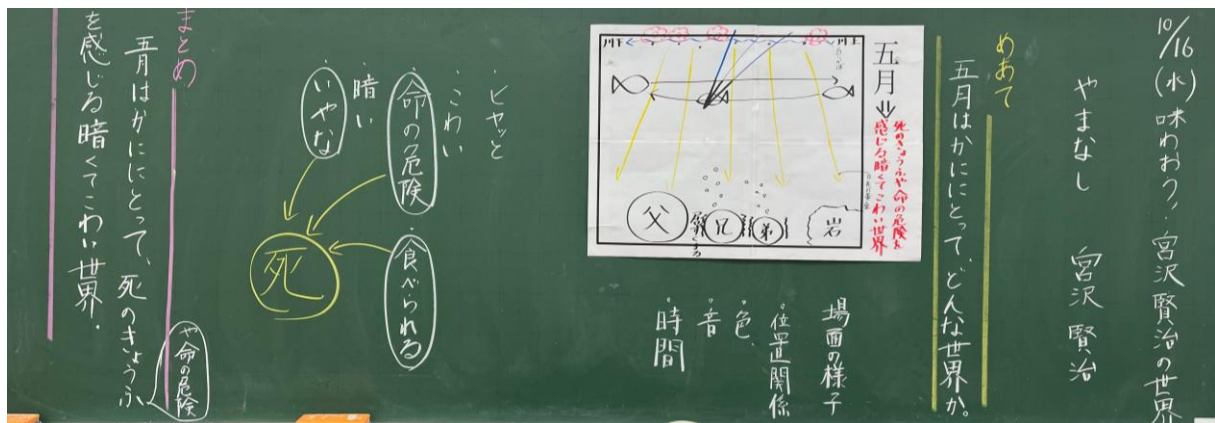 10/16(水) 味わおう！宮沢賢治の世界
やまなし 宮沢 賢治
めあて
五月はかににとって、どんな世界か。
五月⇒死のきょうふや命の危険を
感じる暗くてこわい世界
川上
川下
岩
弟
兄
父
場面の様子
位置関係
色
音
時間
・ヒヤッと
・こわい
・命の危険
・食べられる
暗い
・いやな
死
まとめ
五月はかににとって、死のきょうふ
や命の危険
を感じる暗くてこわい世界.